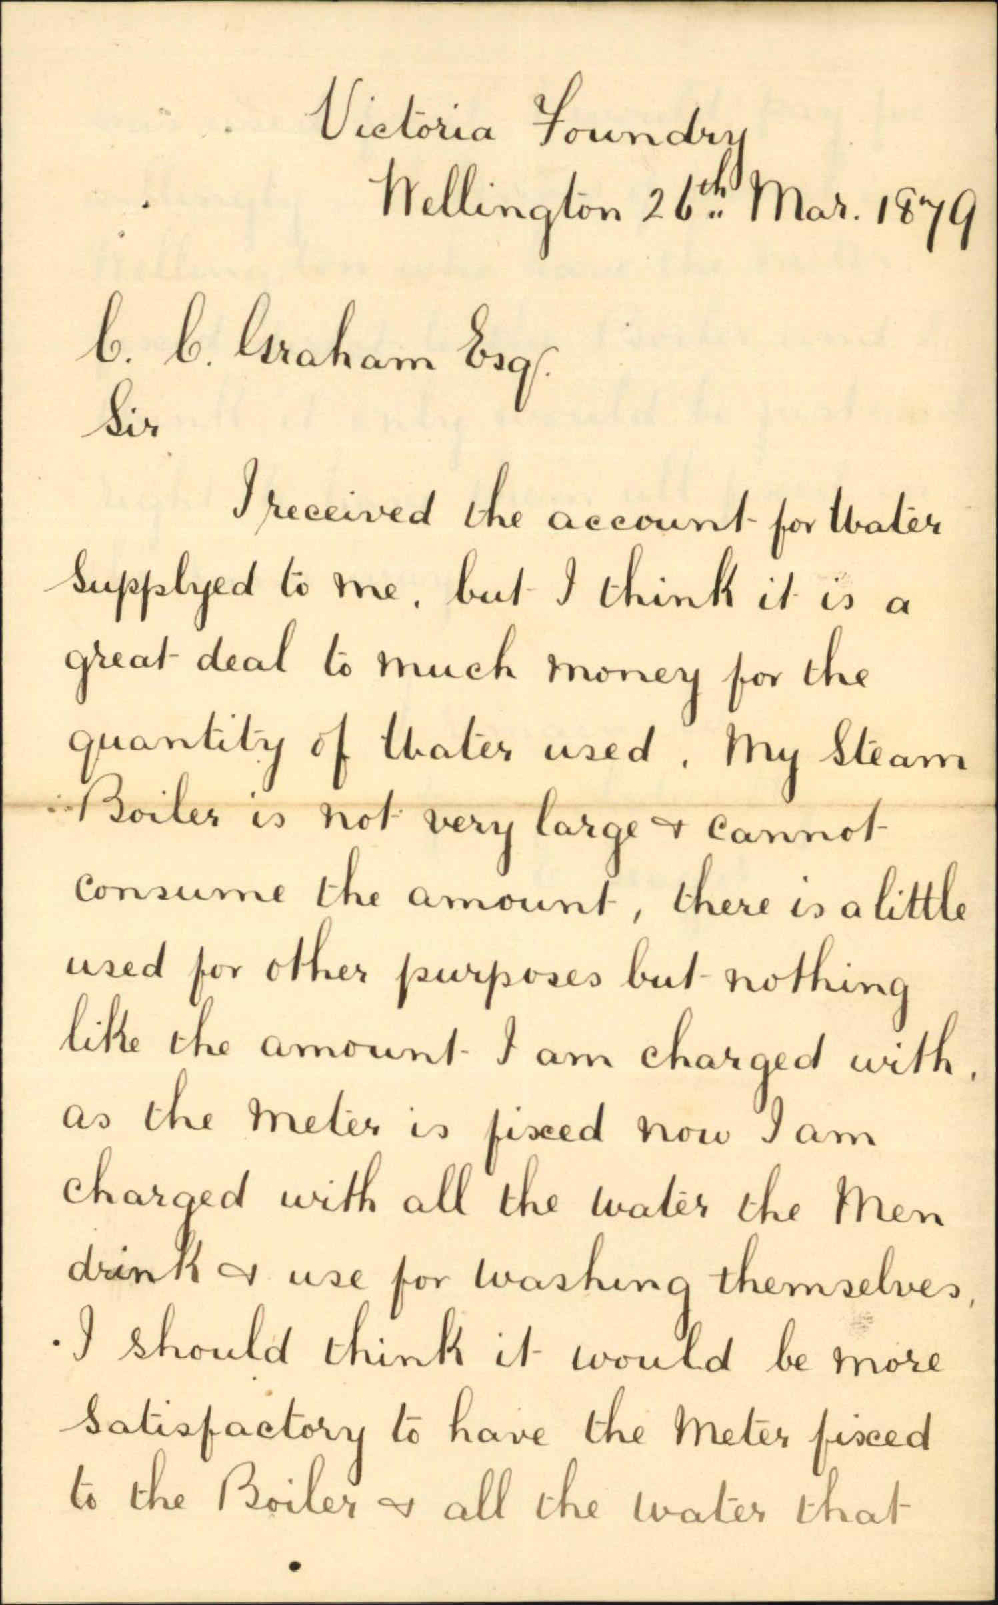 Victoria Foundry
Wellington 26th Mar. 1879
C. C. Graham Esq.
Sir
I received the account for Water
Supplyed to me, but I think it is a
great deal to much money for the
quantity of Water used. My Steam
Boiler is not very large & cannot
consume the amount, there is a little
used for other purposes but nothing
like the amount I am charged with.
as the Meter is fixed now I am
charged with all the water the Men
drink & use for washing themselves,
I should think it would be more
Satisfactory to have the Meter fixed
to the Boiler & all the water that